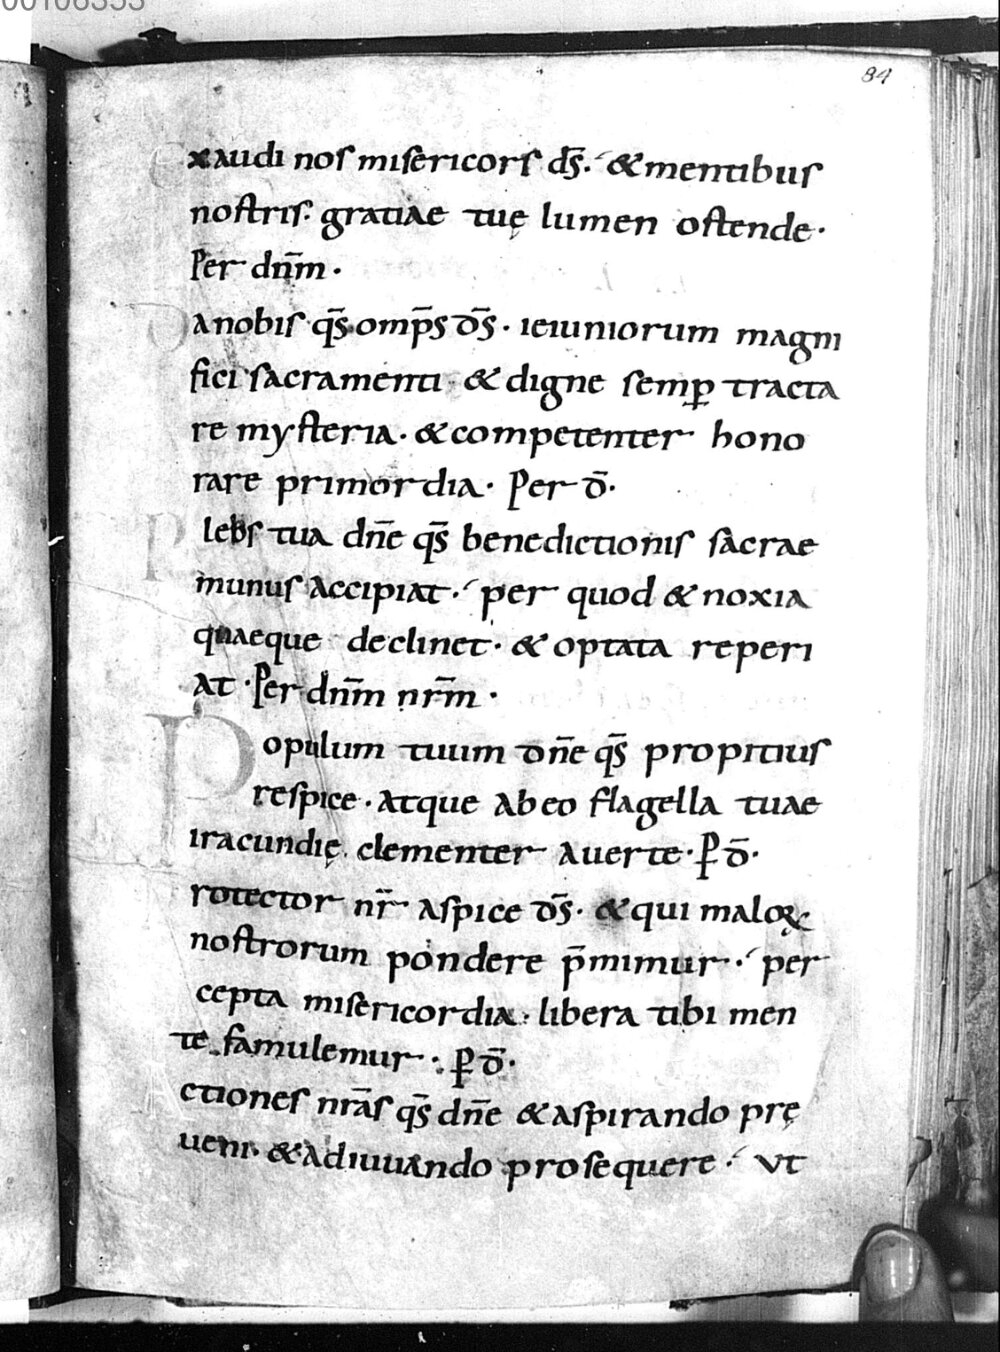 00106353
84
Exaudi nos misericors d̄s. & mentibus
nostris. gratiae tuę lumen ostende.
Per dn̄m.
Da nobis q̄s omp̄s d̄s. ieiuniorum magni
fici sacramenti. & digne semꝑ tracta
re mysteria. & competenter hono
rare primordia. Per d̄.
Plebs tua dn̄e q̄s benedictionis sacrae
munus accipiat. per quod & noxia
quaeque declinet. & optata reperi
at. Per dn̄m nr̄m.
Populum tuum dn̄e q̄s propitius
respice. atque ab eo flagella tuae
iracundię. clementer auerte. P d̄.
rotector nr̄ aspice d̄s. & qui maloꝝ
nostrorum pondere p̄mimur. per
cepta misericordia. libera tibi men
te famulemur. ꝑ d̄.
Actiones nr̄as q̄s dn̄e & aspirando prę
ueni. & adiuuando prosequere. ut